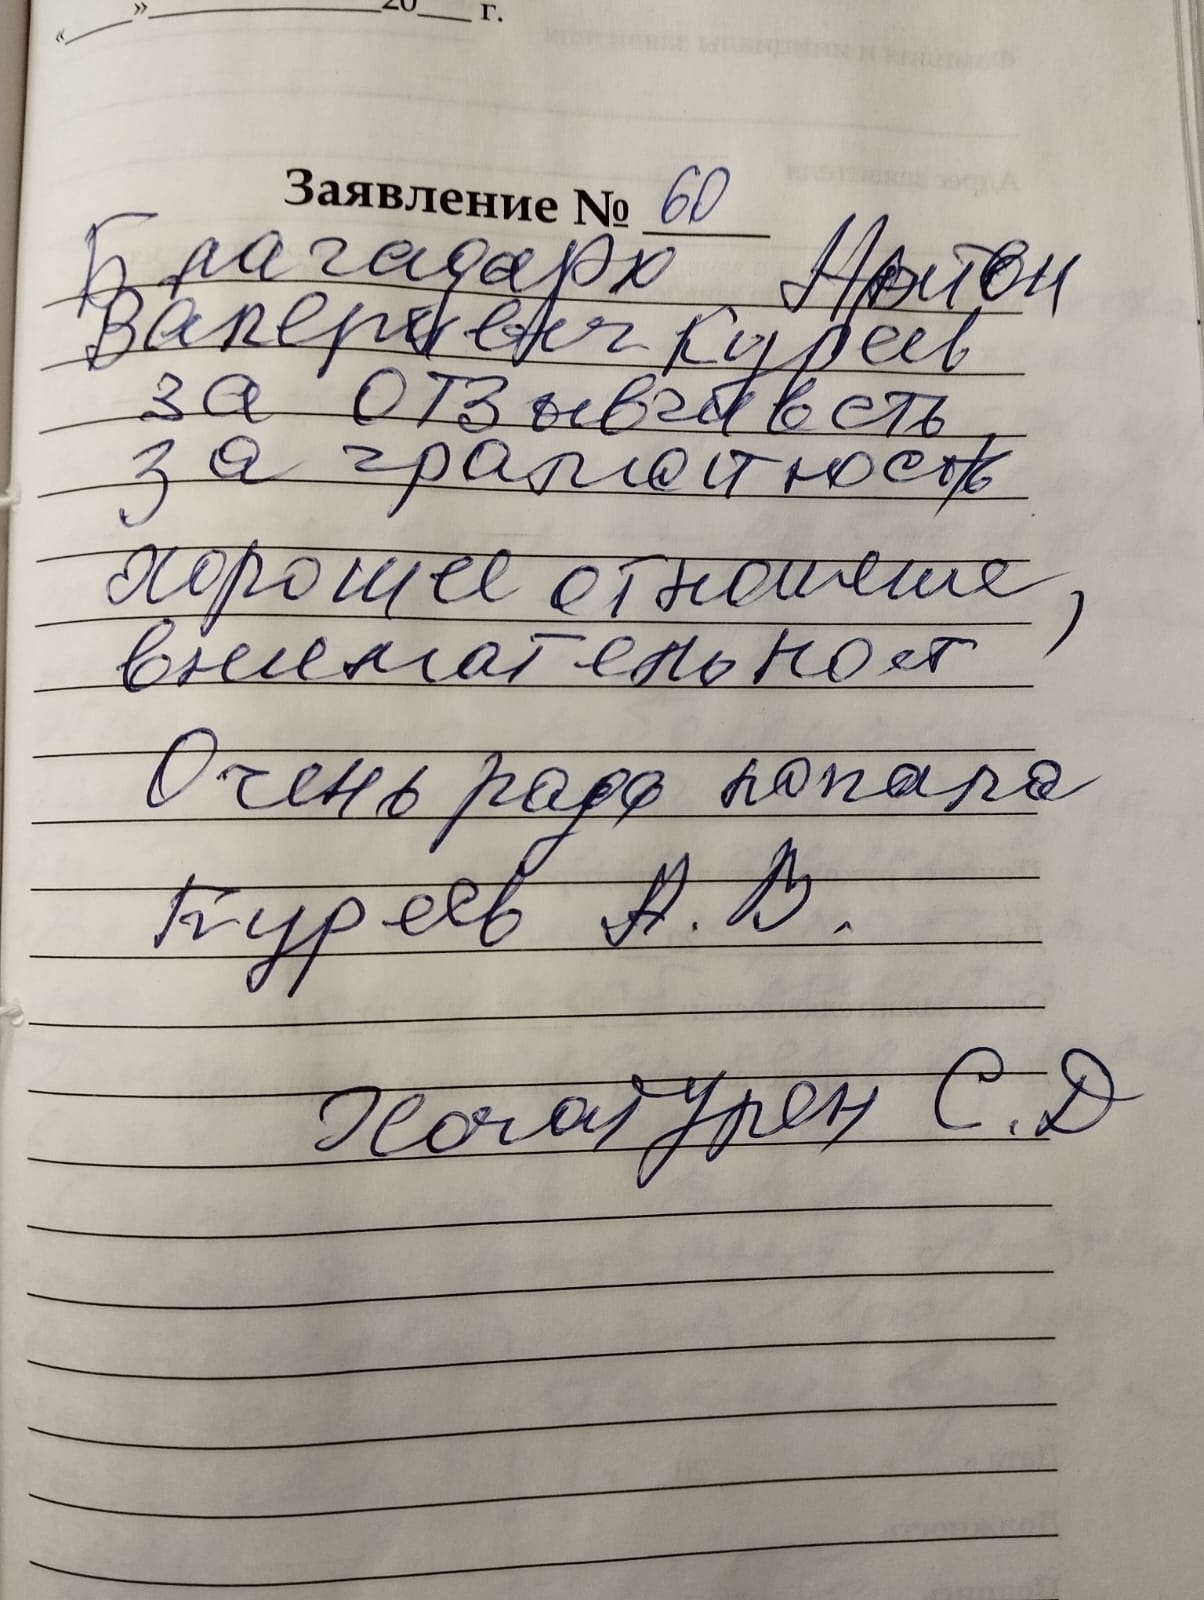 «____»______________20___ г.
Заявление № 60
Благадарю Антон
Валериевич Куреев
за отзывчивсть,
за грамотность
хорошее отношение,
внимательност
Очень рада попала
Куреев А. В.
Хочатурен С.Д